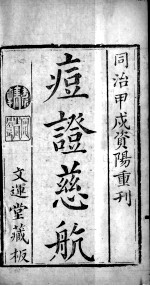 同治甲戌資陽重刊
痘證慈航
文運堂藏板